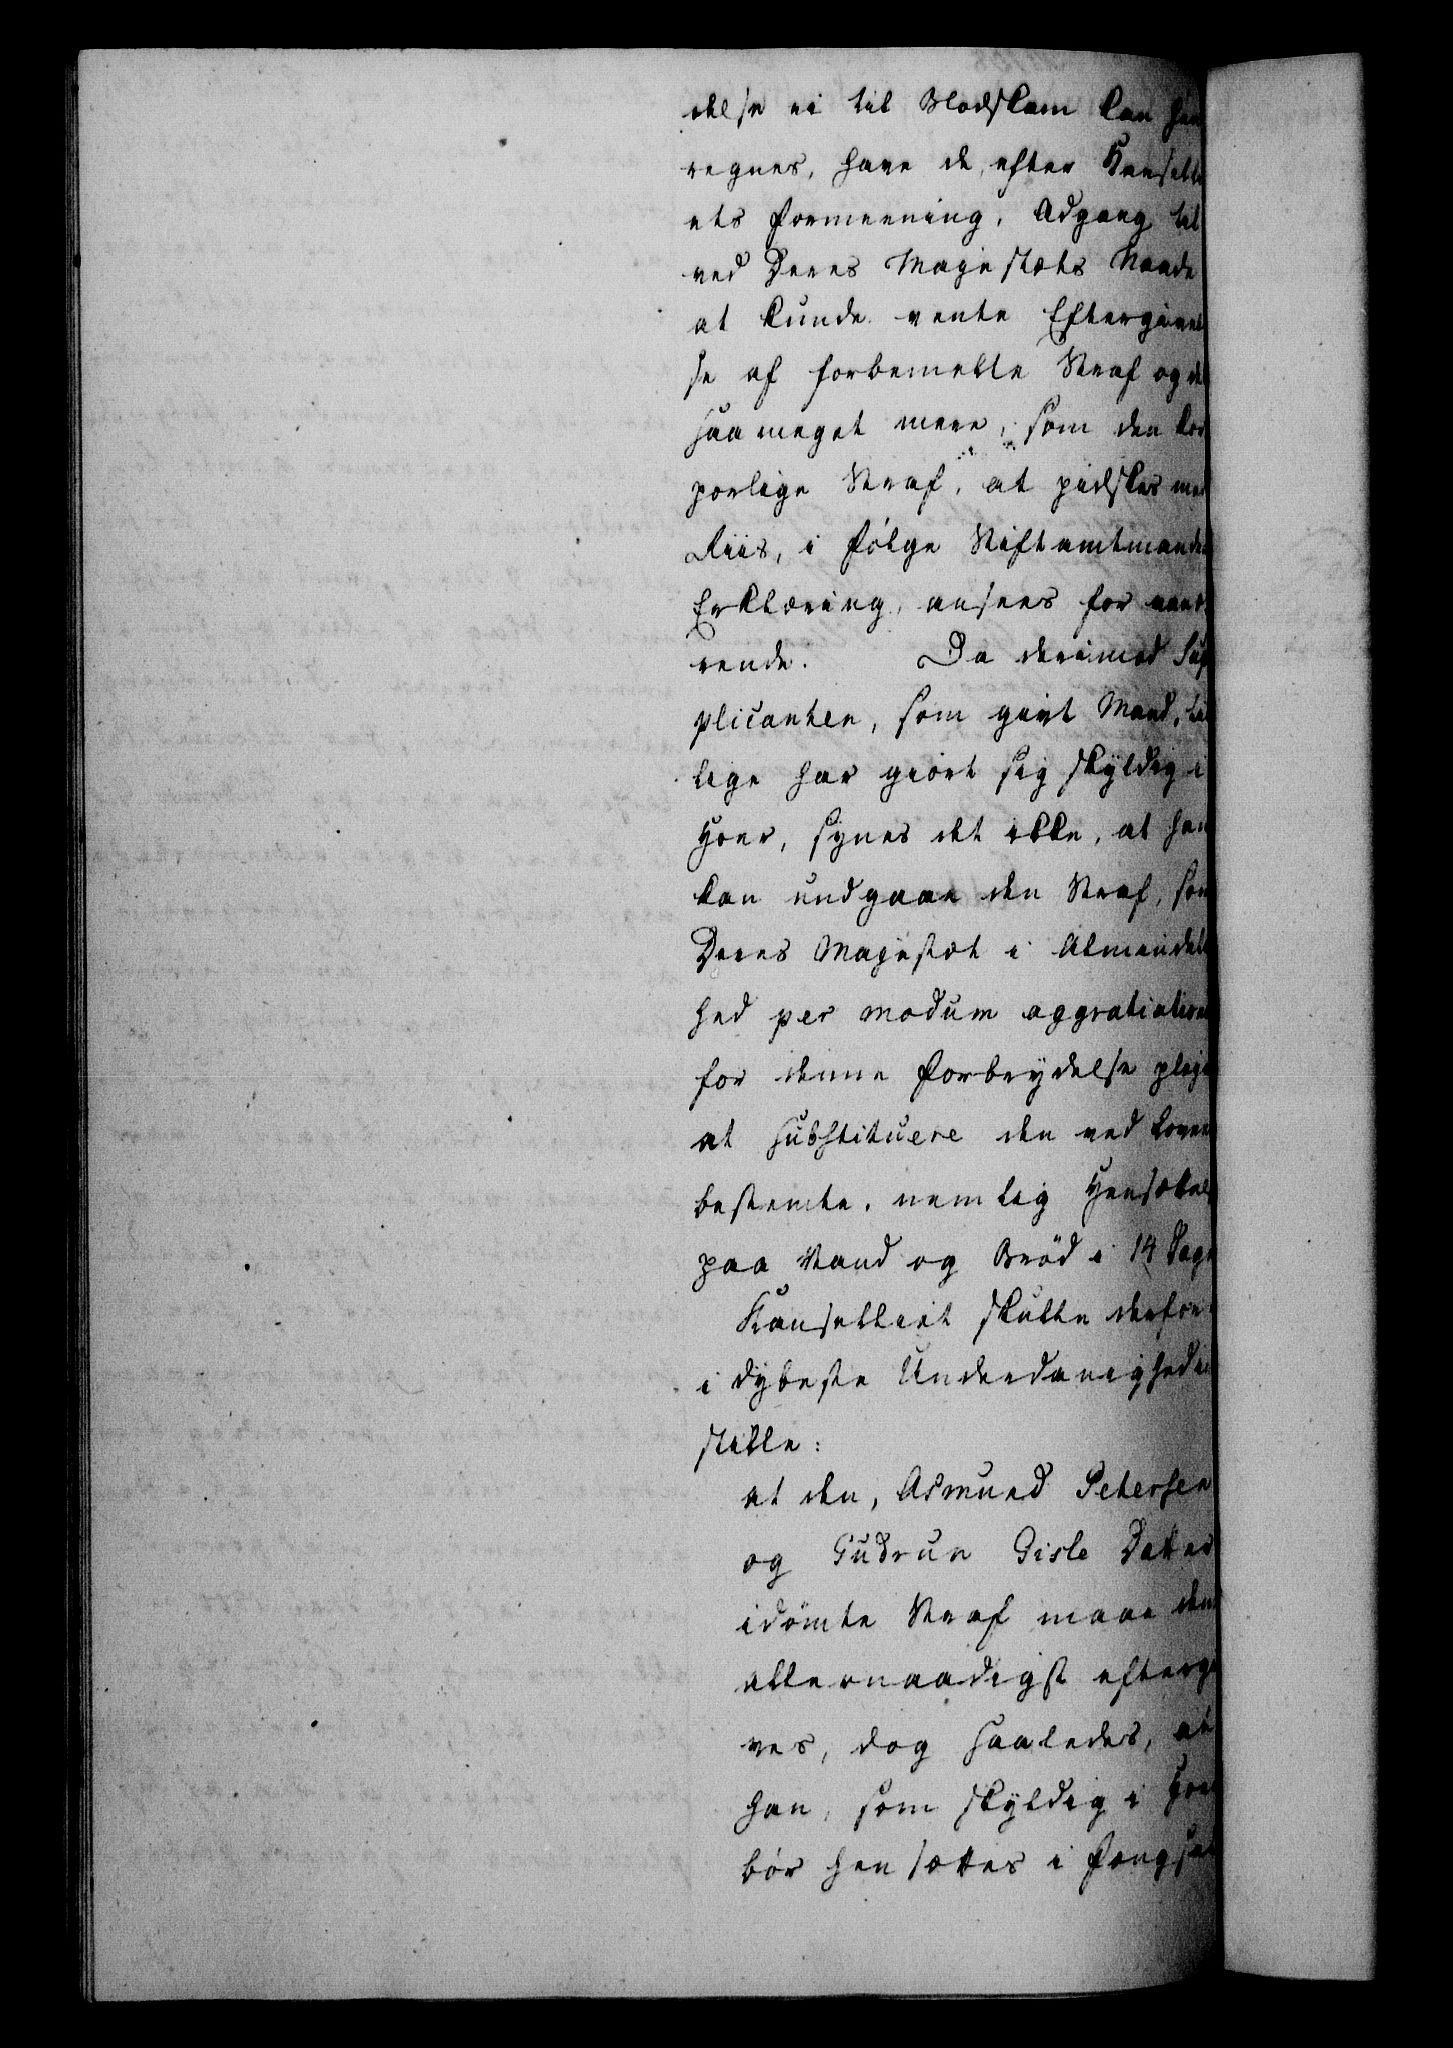 delse ei til Blodskam kan hen
regnes, have de, efter Kanselli
ets Formeening, Adgang til
ved Deres Majestæts Naade
at kunde vente Eftergivel
se af forbemelte Straf og det
saa meget meer, som den kor
porlige Straf, at pidskes med
Riis, i følge Stiftamtmandens
Erklæring, ansees for vanæ
rende. Da derimod Sup
plicanten, som givt Mand, til
lige har giort sig skyldig i
Hoer, synes det ikke, at han
kan undgaae den Straf, som
Deres Majestæt i Almindelig
hed per modum aggratiationis
for denne Forbrydelse pleier
at substituere den ved Loven
bestemte, nemlig Hensættelse
paa Vand og Brød i 14 Dage
Kanselliet skulle derfor
i dybeste Underdanighed ind
stille:
at den, Asmund Petersen
og Gudrun Gisle Datter
idømte Straf maae dem
allernaadigst eftergi
ves, dog saaledes, at
han, som skyldig i Hoer
bør hensættes i Fængsel